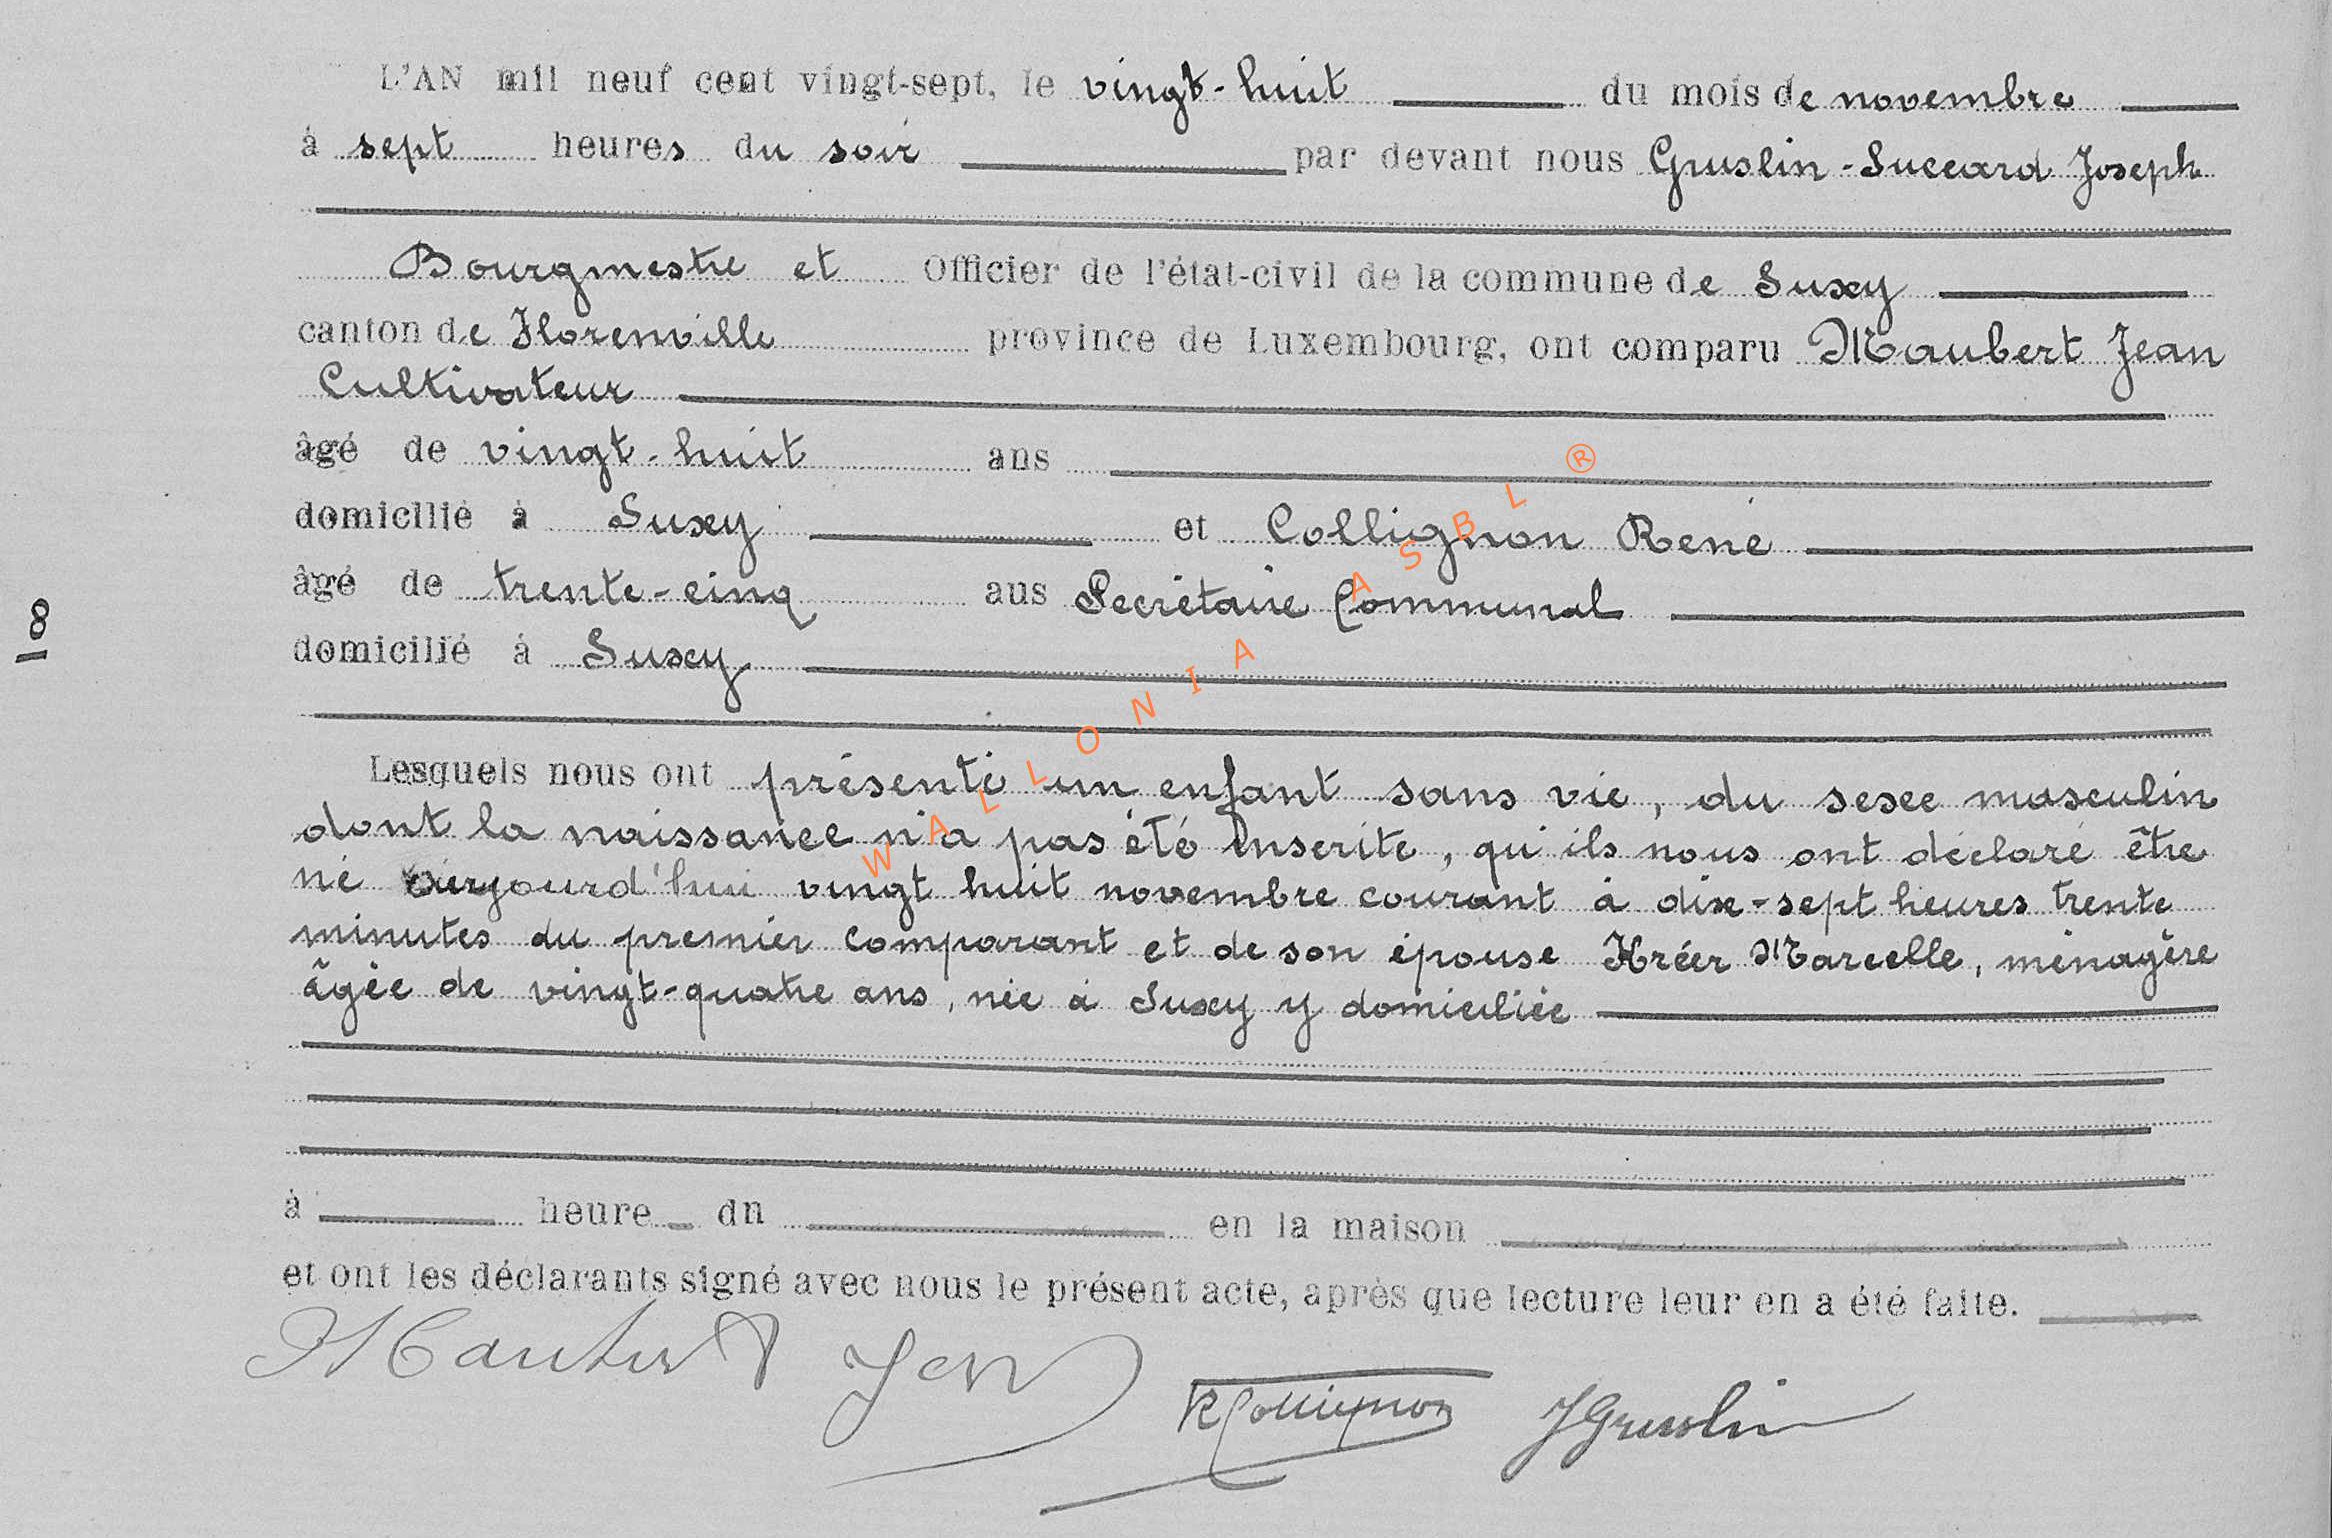 L'AN mil neuf cent vingt-sept, le vingt-huit du mois de novembre
à sept heures du soir par devant nous Gruslin-Succard Joseph
Bourgmestre et Officier de l'état-civil de la commune de Suxy
canton de Florenville province de Luxembourg, ont comparu Maubert Jean
Cultivateur
âgé de vingt-huit ans
domicilié à Suxy et Collignon René
âgé de trente-cinq aus Secrétaire Communal
8
domicilié à Suxy
Lesquels nous ont présenté un enfant sans vie, du sexe masculin
dont la naissance n'a pas été inscrite, qu'ils nous ont déclaré être
né aujourd'hui vingt huit novembre courant à dix-sept heures trente
minutes du premier comparant et de son épouse Kréer Marcelle, ménagère
âgée de vingt-quatre ans, née à Suxy y domiciliée
à heure dn en la maison
et ont les déclarants signé avec nous le présent acte, après que lecture leur en a été faite.
Maubert Jean R Collignon J Gruslin
WALLONIA ASBL ®